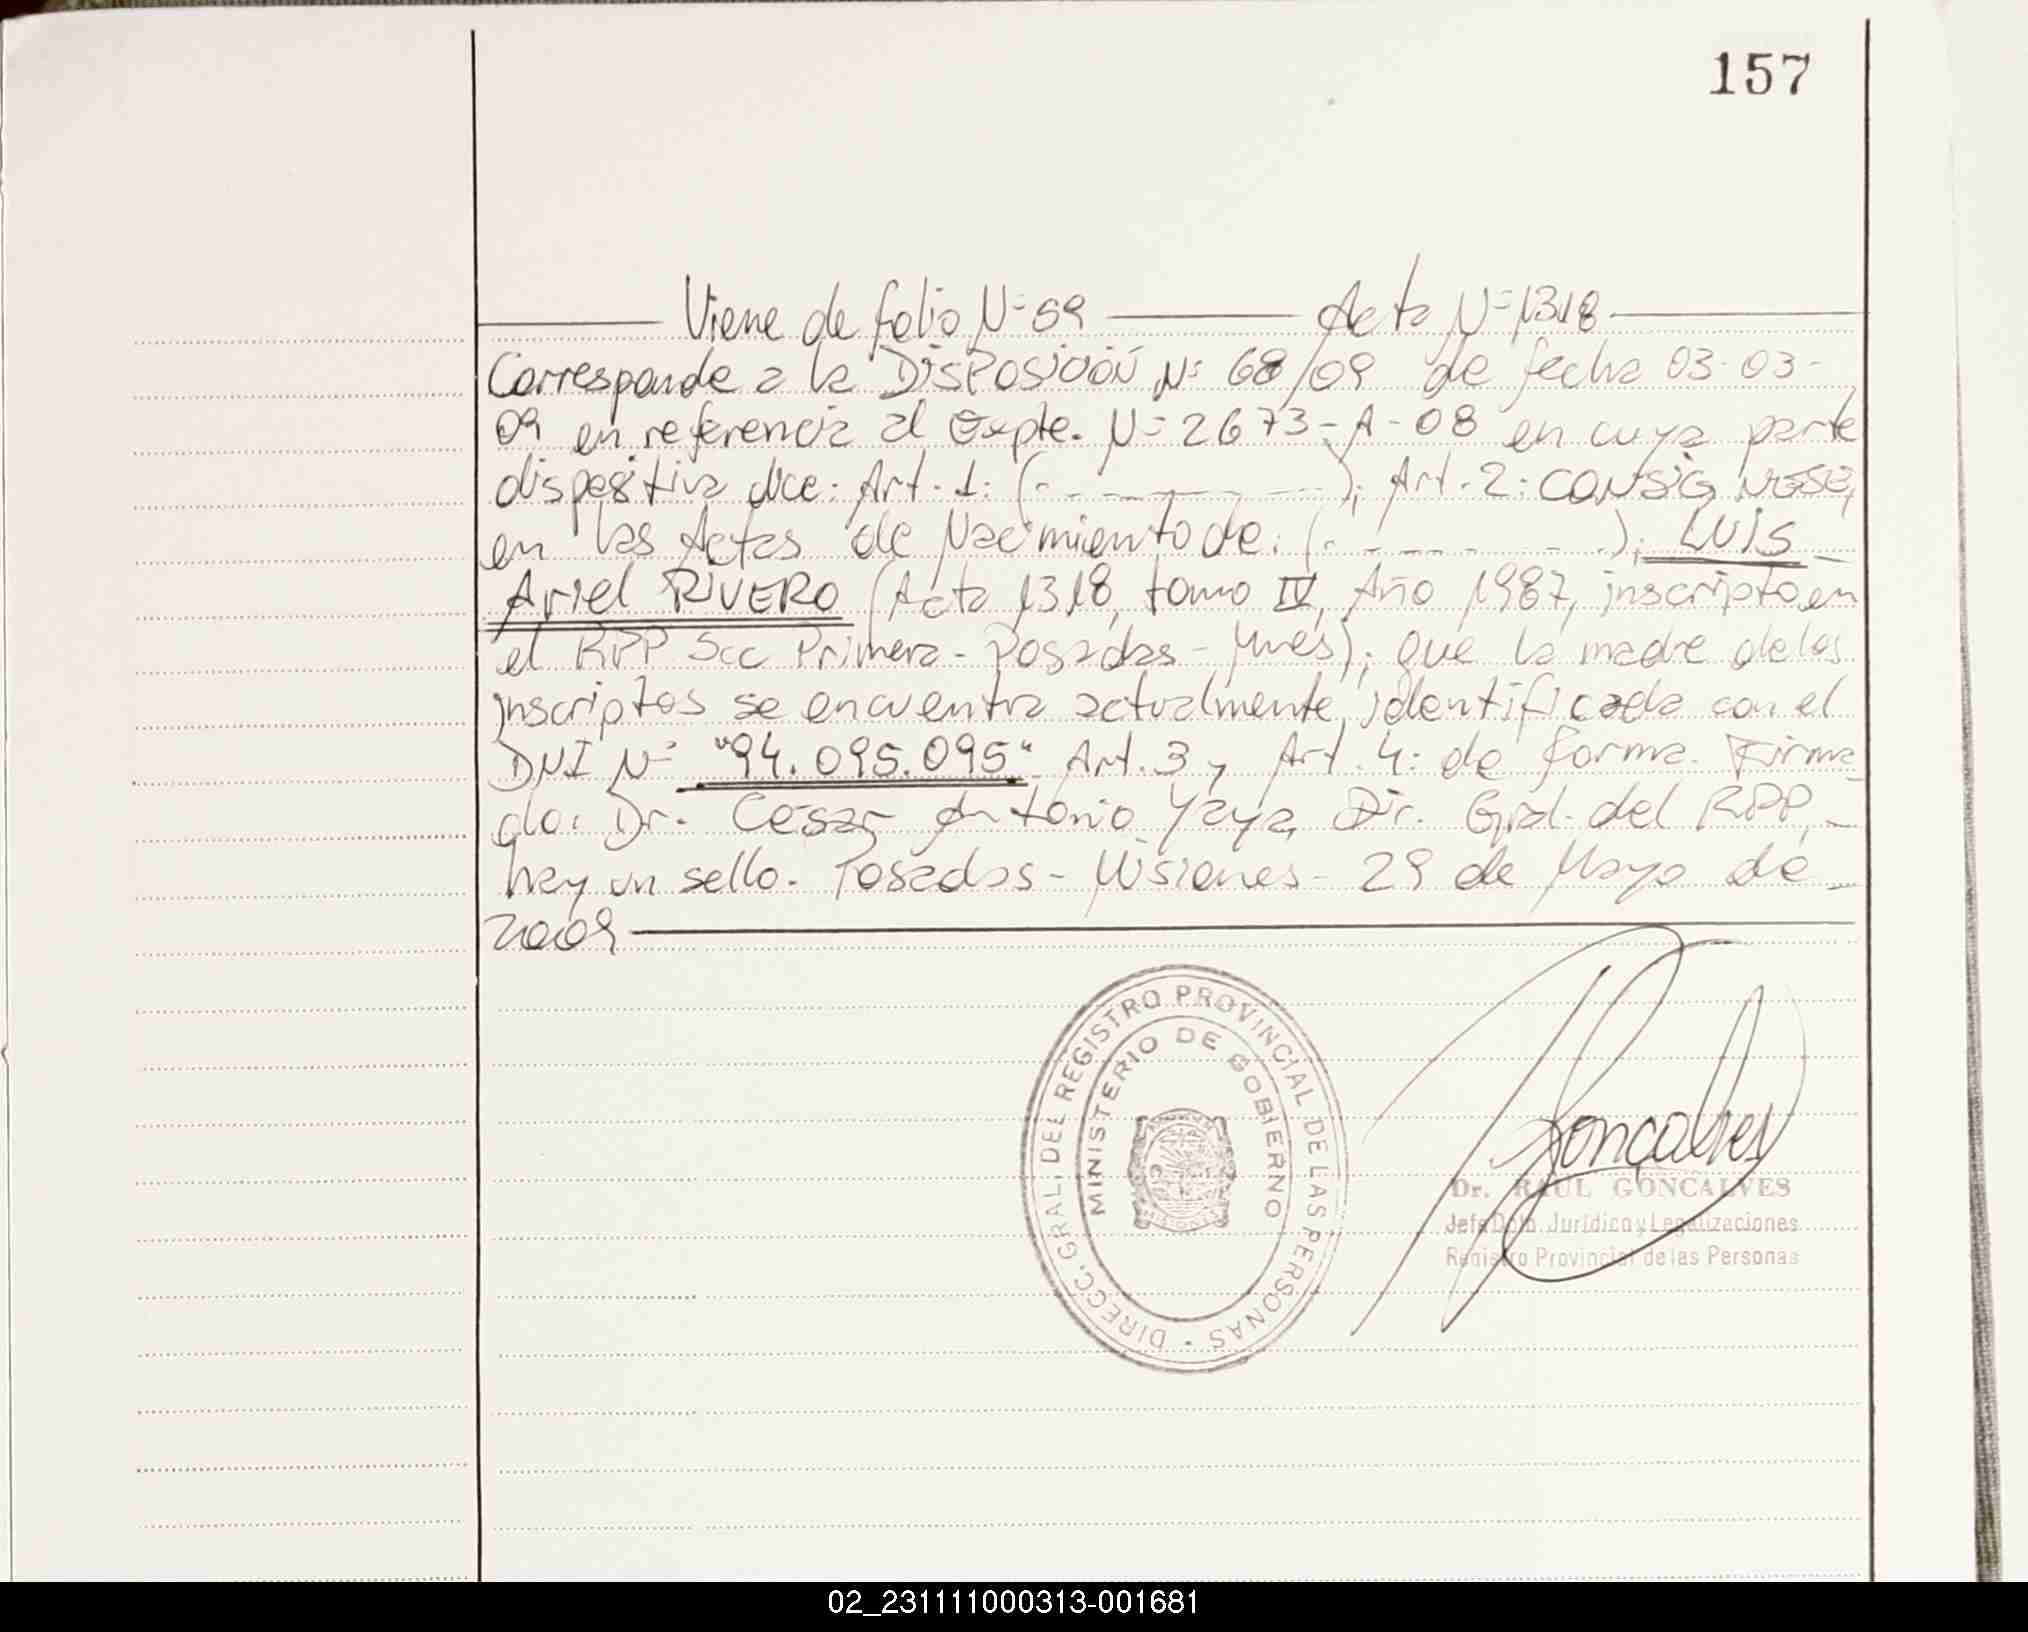 157
Viene de folio N= 59 Acta N= 1318
Corresponde a la DISPOSICIÓN N= 68/09 de fecha 03-03-
09 en referencia al Expte. N= 2673-A-08 en cuya parte
dispositiva dice: Art. 1: (- - - - - - - -); Art. 2: CONSIGNESE,
en las Actas de Nacimiento de: (- - - - - - - -); LUIS
Ariel RIVERO (Acta 1318, tomo IV, Año 1987, inscripto en
el RPP Scc Primera - Posadas - Mnes); que la madre de los
inscriptos se encuentra actualmente identificada con el
DNI N= "94.095.095" Art. 3 y Art. 4: de forma. Firma
do: Dr. César Antonio Yaya, Dir. Gral. del RPP,
hay un sello. Posadas - Misiones - 29 de Mayo de
2009
DIRECC. GRAL. DEL REGISTRO PROVINCIAL DE LAS PERSONAS
MINISTERIO DE GOBIERNO
Goncalves
Dr. RAUL GONCALVES
Jefe Dpto. Jurídico y Legalizaciones
Registro Provincial de las Personas
02_231111000313-001681